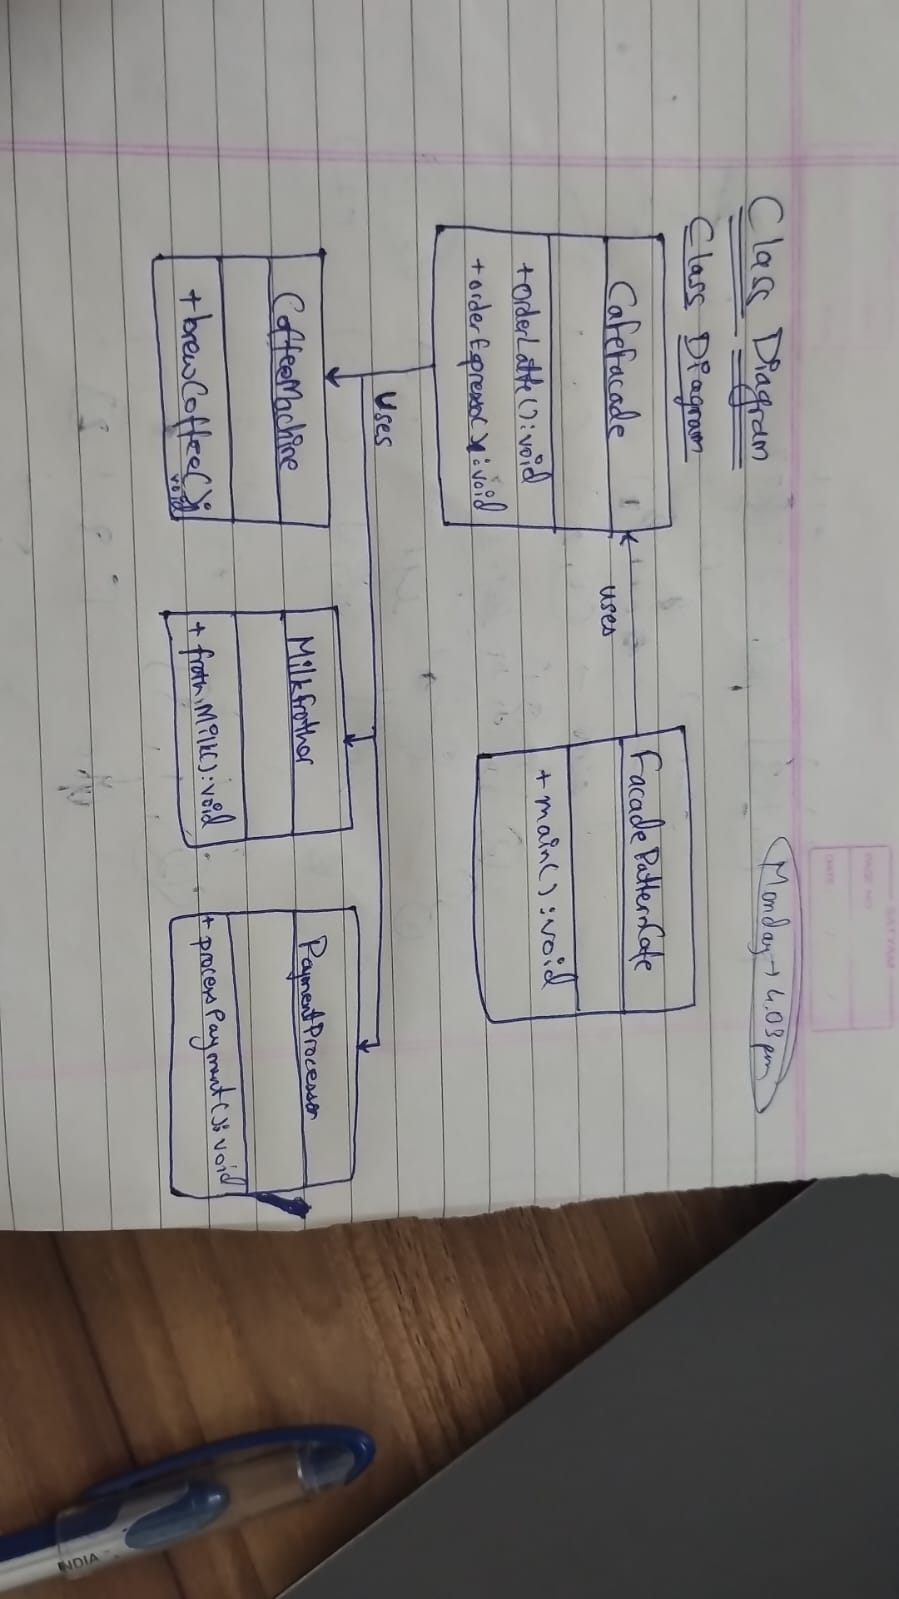 Monday → 4.03 pm
Class Diagram
Class Diagram
CafeFacade
+orderLatte():void
+orderEspresso():void
uses
FacadePatternCafe
+main():void
uses
CoffeeMachine
+brewCoffee():
void
MilkFrother
+frothMilk():void
PaymentProcessor
+processPayment():void
INDIA